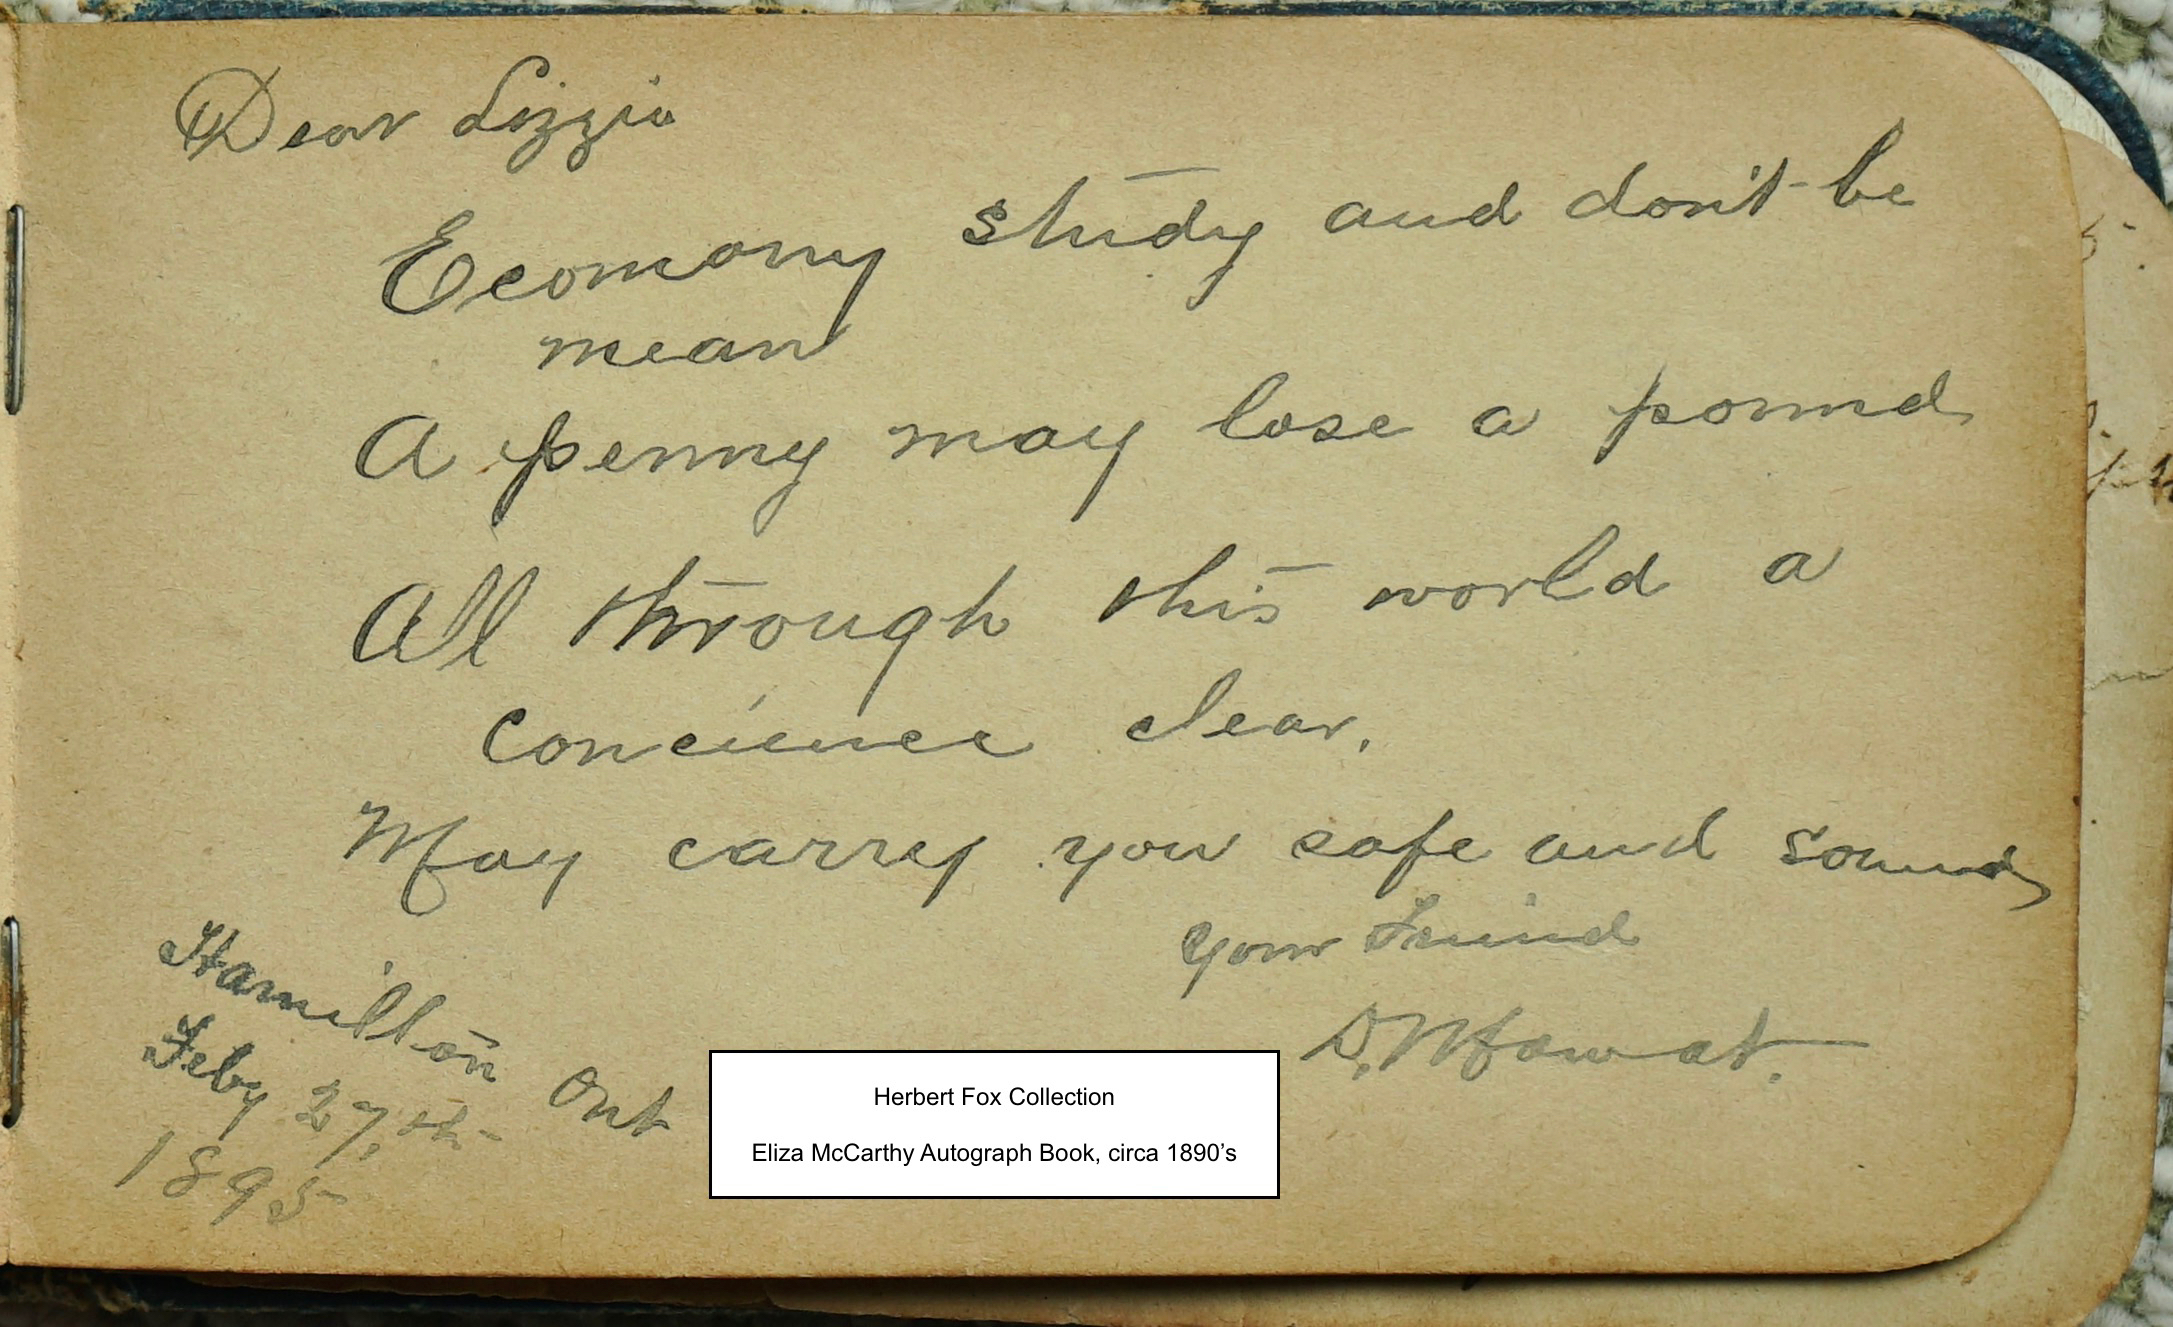 Dear Lizzie
Economy study and don't be
mean
A penny may lose a pound
All through this world a
Concience clear.
May carry you safe and sound
Your Friend
D. Mowat.
Hamilton Ont
Feby 27, th
1895
Herbert Fox Collection
Eliza McCarthy Autograph Book, circa 1890’s